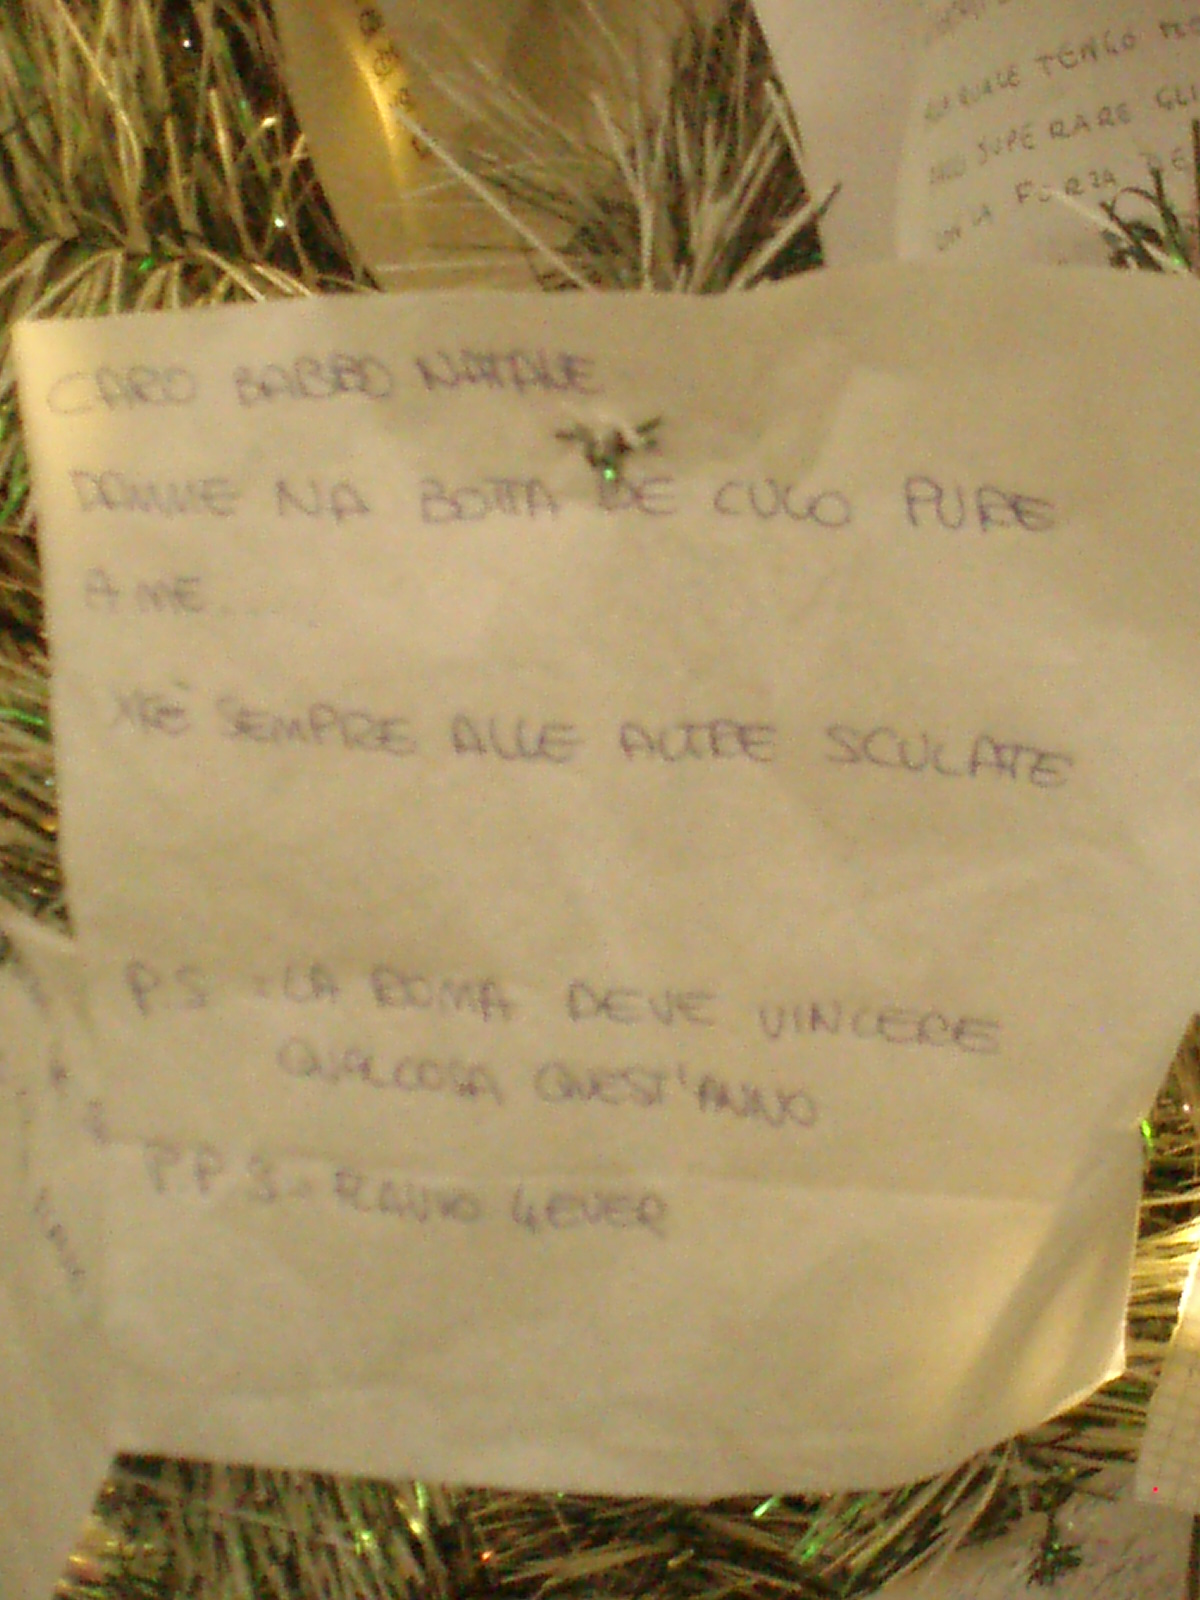 QUALE TENGO
SUPERARE GLI
FORZA DE
CARO BABBO NATALE
DAMME NA BOTTA DE CULO PURE
A ME...
XKÈ SEMPRE ALLE ALTRE SCULATE
P.S - LA ROMA DEVE VINCERE
QUALCOSA QUEST'ANNO
P P S - 4EVER